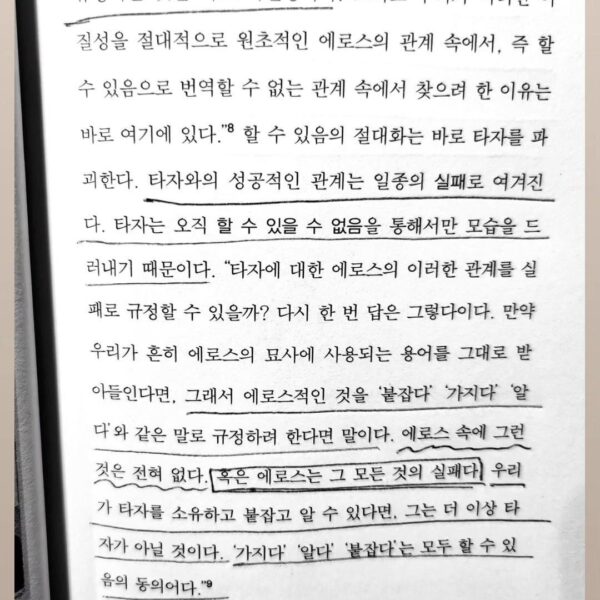 질성을 절대적으로 원초적인 에로스의 관계 속에서, 즉 할
수 있음으로 번역할 수 없는 관계 속에서 찾으려 한 이유는
바로 여기에 있다.”8 할 수 있음의 절대화는 바로 타자를 파
괴한다. 타자와의 성공적인 관계는 일종의 실패로 여겨진
다. 타자는 오직 할 수 있을 수 없음을 통해서만 모습을 드
러내기 때문이다. “타자에 대한 에로스의 이러한 관계를 실
패로 규정할 수 있을까? 다시 한 번 답은 그렇다이다. 만약
우리가 흔히 에로스의 묘사에 사용되는 용어를 그대로 받
아들인다면, 그래서 에로스적인 것을 ‘붙잡다’ ‘가지다’ ‘알
다’와 같은 말로 규정하려 한다면 말이다. 에로스 속에 그런
것은 전혀 없다. 혹은 에로스는 그 모든 것의 실패다. 우리
가 타자를 소유하고 붙잡고 알 수 있다면, 그는 더 이상 타
자가 아닐 것이다. ‘가지다’ ‘알다’ ‘붙잡다’는 모두 할 수 있
음의 동의어다.”9